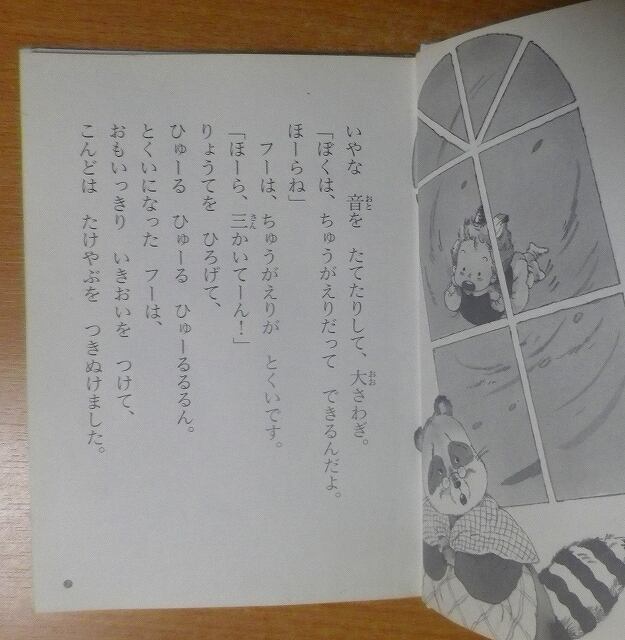 いやな　音を　たてたりして、大さわぎ。
「ぼくは、ちゅうがえりだって　できるんだよ。
ほーらね」
　フーは、ちゅうがえりが　とくいです。
「ほーら、三かいてーん！」
りょうてを　ひろげて、
ひゅーる　ひゅーる　ひゅーるるるん。
とくいになった　フーは、
おもいっきり　いきおいを　つけて、
こんどは　たけやぶを　つきぬけました。